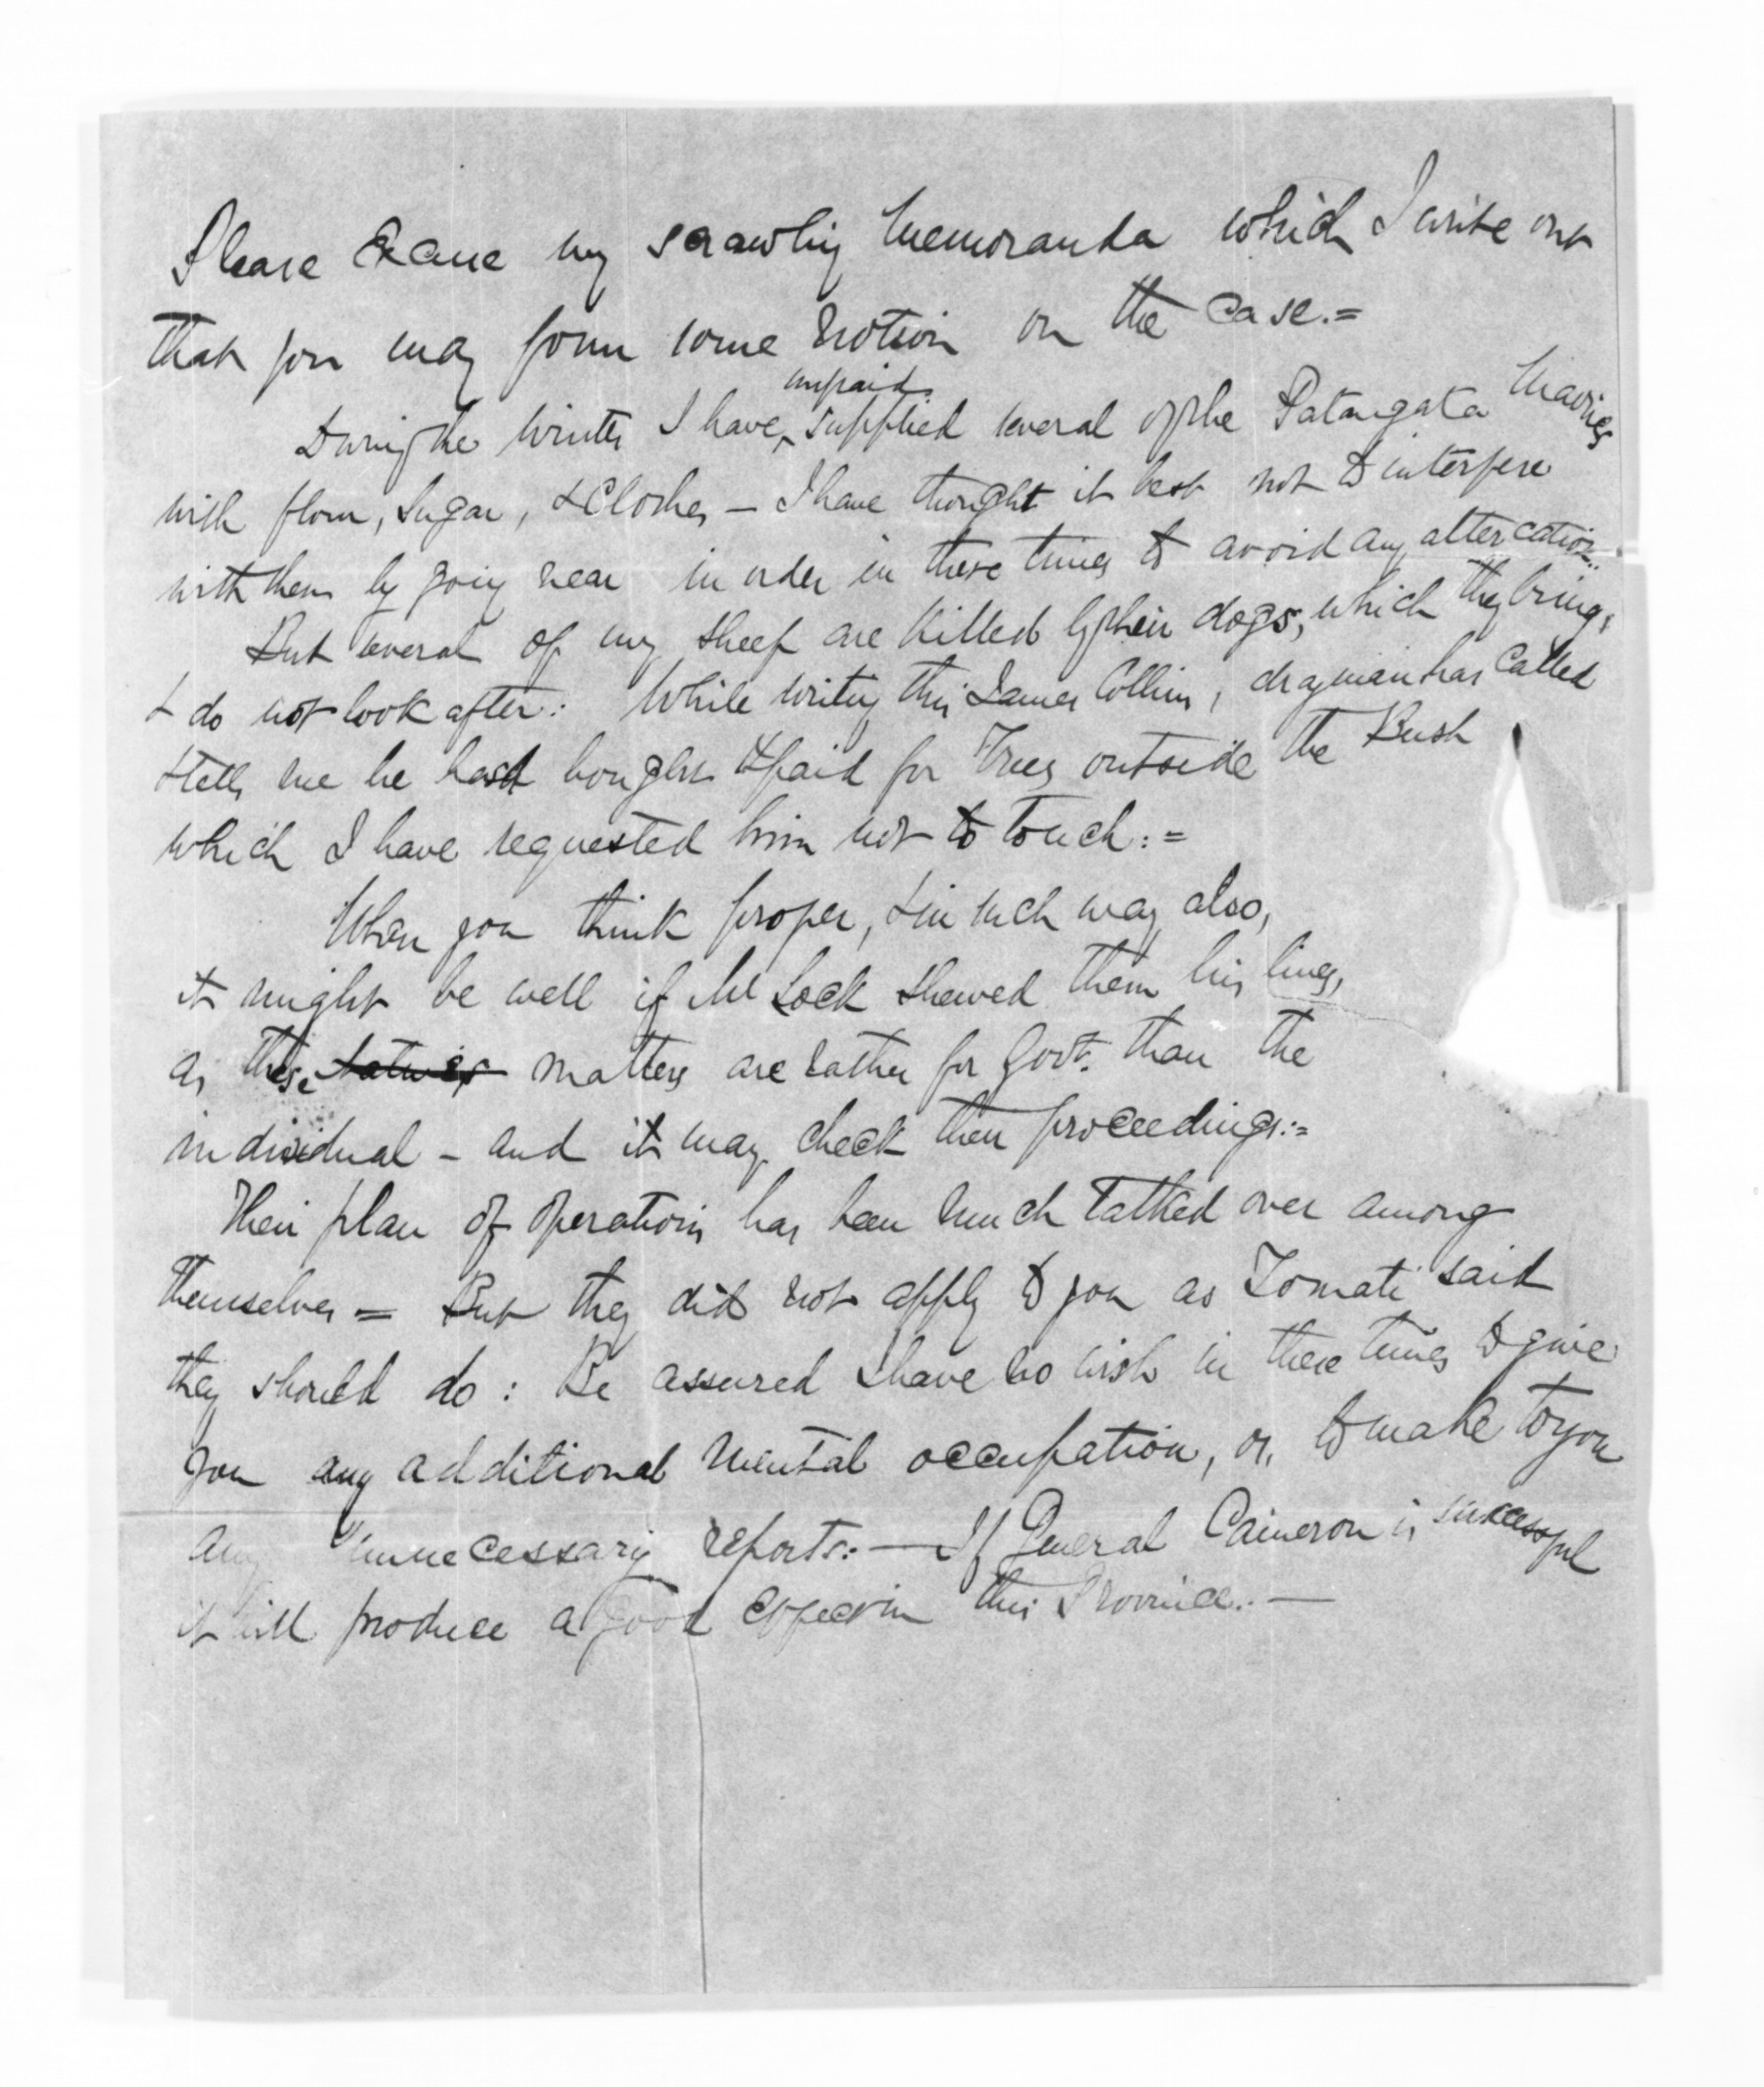 Please Excuse my scrawling Memoranda which I write out
that you may form some Notion on the case.=
unpaid
During the Winter I have supplied several of the Patangata Maories
with flour, Sugar, & Clothes — I have thought it best not to interfere
with them by going near in order in these times to avoid any altercation..
But several of my sheep are killed by their dogs, which they bring,
& do not look after: While writing this James Collins, drayman has called
& tells me he has bought & paid for Trees outside the Bush
which I have requested him not to touch:=
When you think proper, & in such way also,
it might be well if Mr Lock shewed them his lines,
as these matters are rather for Govt. than the
individual - and it may check their proceedings:=
Their plan of operations has been much talked over among
themselves = But they did not apply to you as Tomati said
they should do: Be assured I have no wish in these times to give
you any additional mental occupation, or, to make to you
any unnecessary reports:— If General Cameron is successful
it will produce a good effect in this Province.—